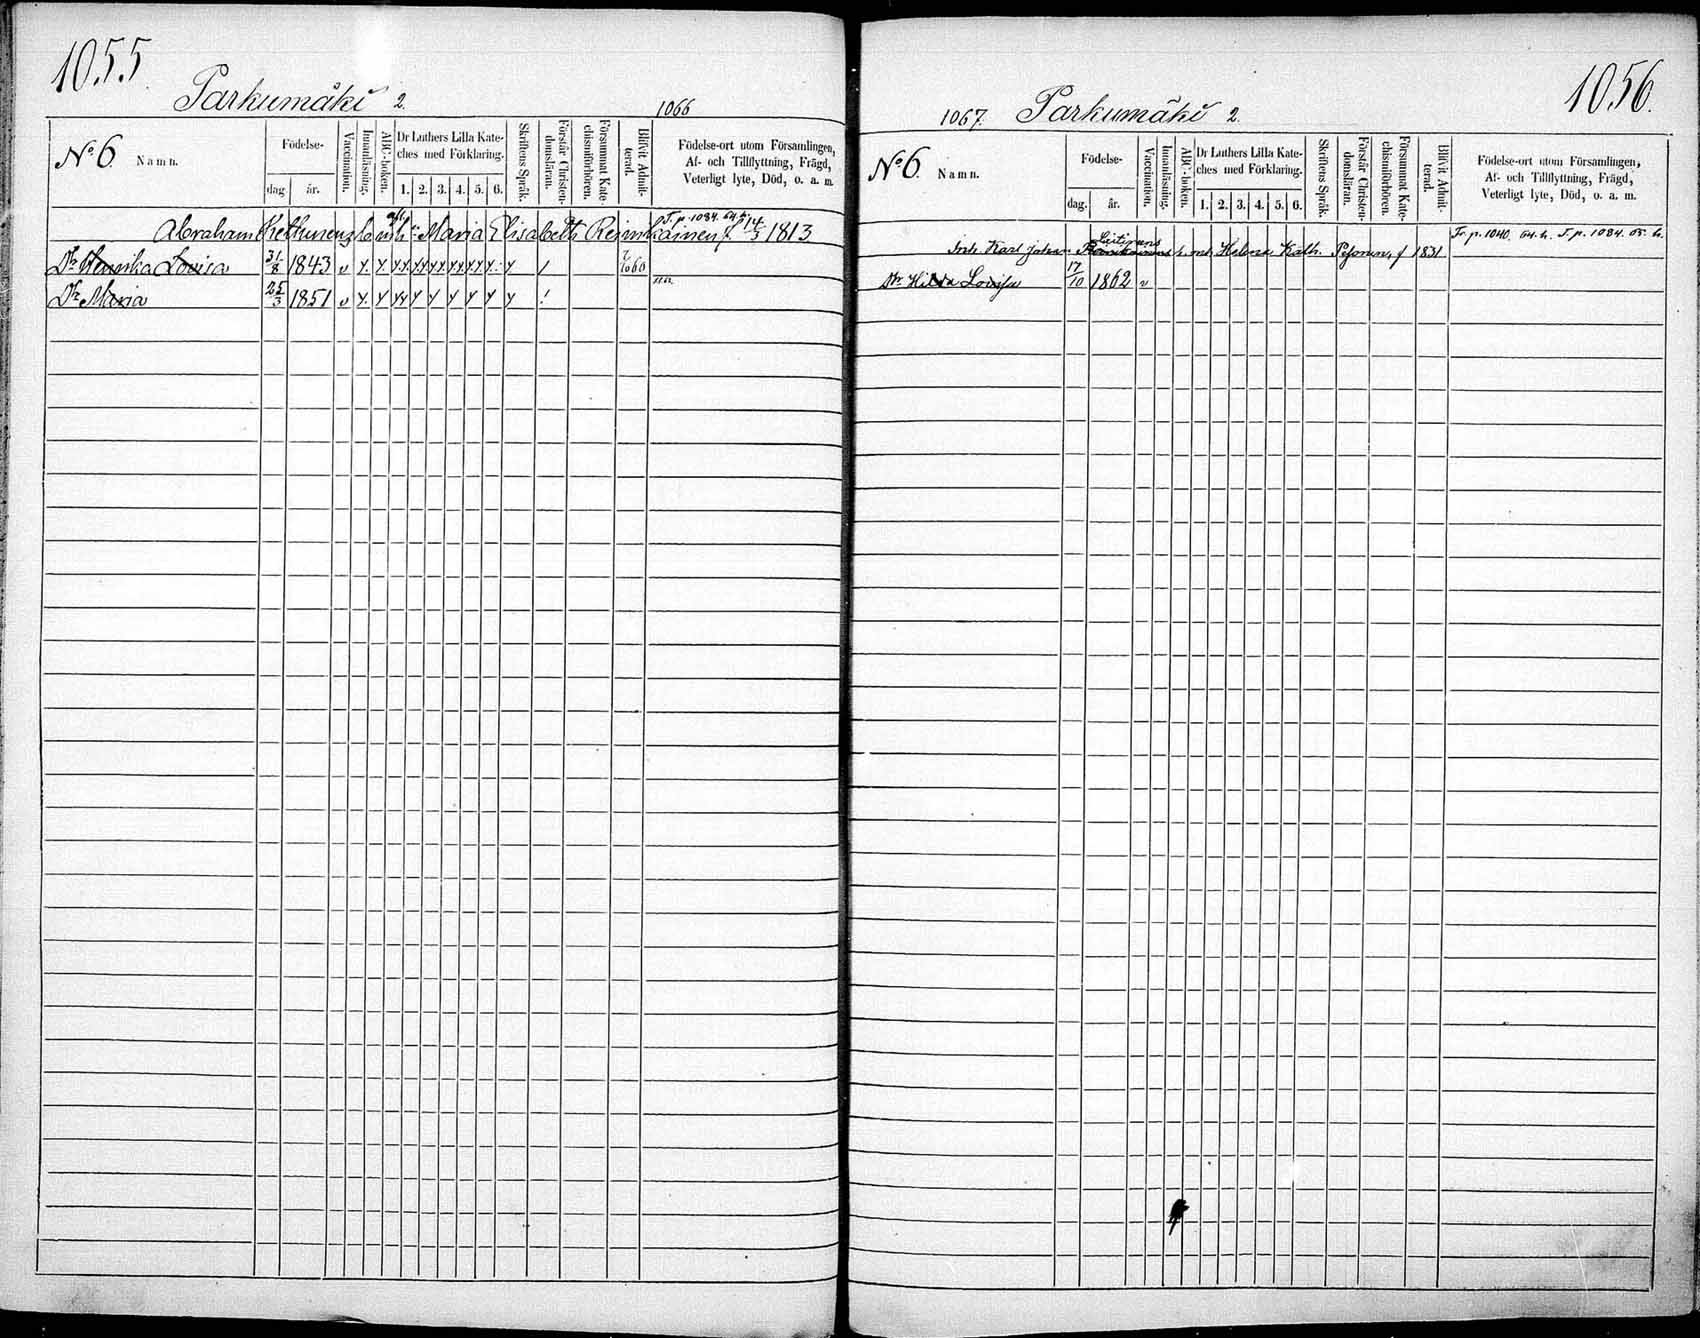 1055
Parkumäki 2.
1066
No. 6
Namn.
Födelse-
dag
år.
Vaccination.
Innanläsning.
ABC-boken.
Dr Luthers Lilla Kate-
ches med Förklaring.
1. 2. 3. 4. 5. 6.
Skriftens Språk.
Förstår Christen-
domsläran.
Försummat Kate-
chismiförhören.
Blifvit Admit-
terad.
Födelse-ort utom Församlingen,
Af- och Tillflyttning, Frägd,
Veterligt lyte, Död, o. a. m.
T. p. 1084. 64.
Abraham Maria Elisabeth 14/3 1813
Dr Henrika Lovisa 31/8 1843 v
Dr Maria 25/3 1851 v
1056.
1067. Parkumäki 2.
No. 6
Namn.
Födelse-
dag.
år.
Vaccination.
Innanläsning.
ABC-boken.
Dr Luthers Lilla Kate-
ches med Förklaring.
1. 2. 3. 4. 5. 6.
Skriftens Språk.
Förstår Christen-
domsläran.
Försummat Kate-
chismiförhören.
Blifvit Admit-
terad.
Födelse-ort utom Församlingen,
Af- och Tillflyttning, Frägd,
Veterligt lyte, Död, o. a. m.
Fr. p. 1040. 64. h. T. p. 1084. 65. h.
Inh. Karl Johan h. m. Helena Kath. Pesonen, f 1831
Dr Hilda Lovisa 17/10 1862 v